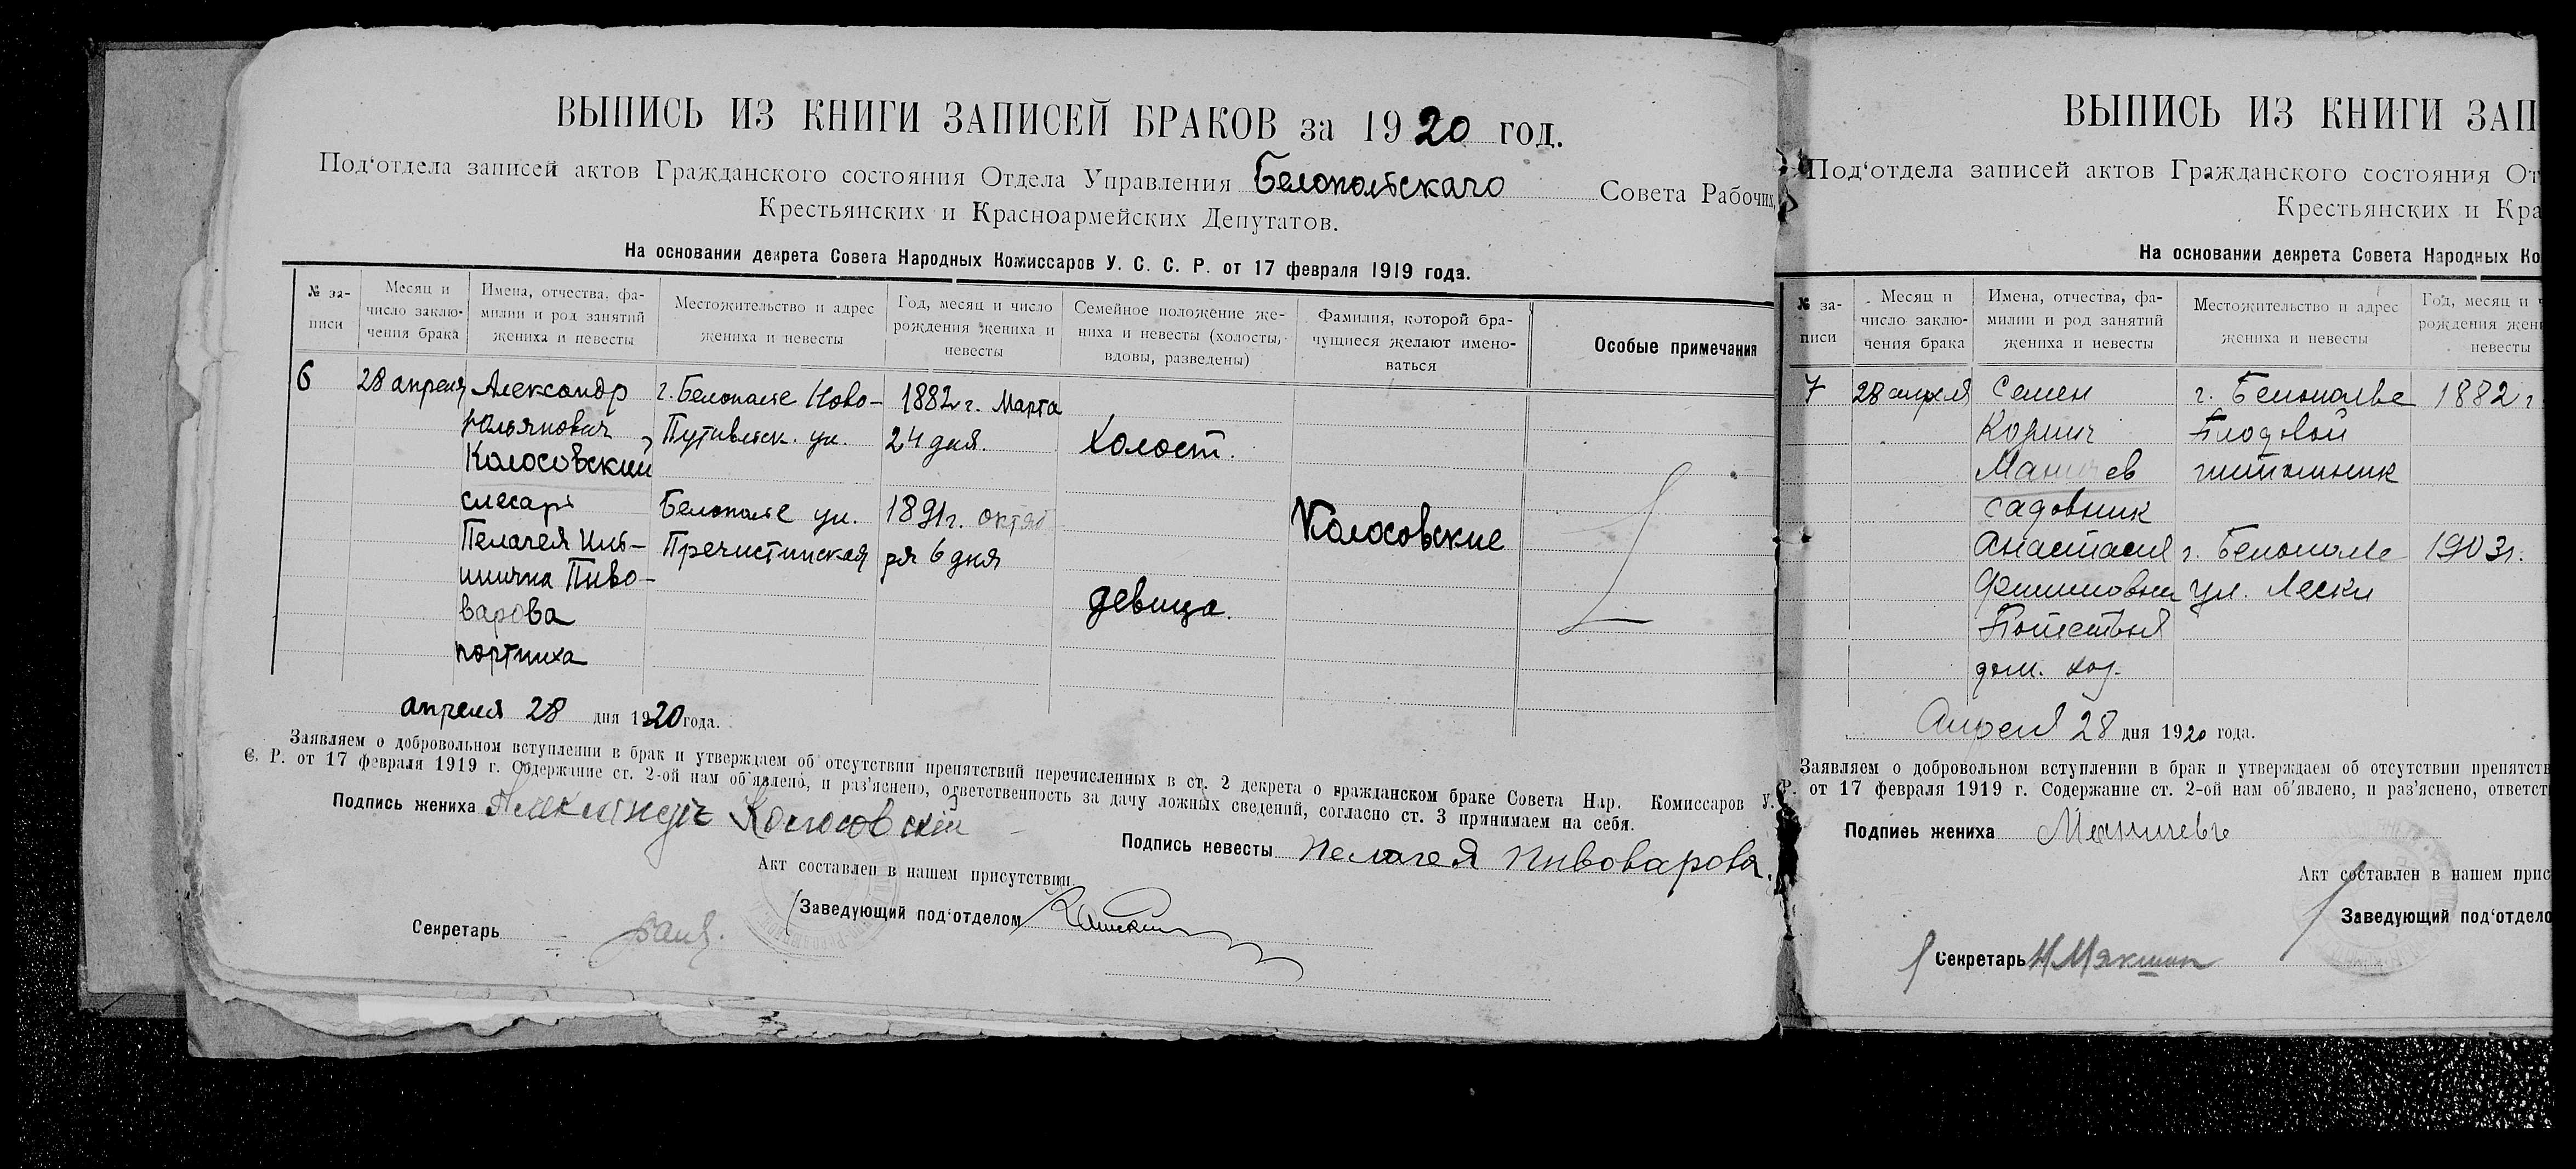 ВЫПИСЬ ИЗ КНИГИ ЗАПИСЕЙ БРАКОВ за 1920 год.
Под‘отдела записей актов Гражданского состояния Отдела Управления Белопольскаго Совета Рабочих,
Крестьянских и Красноармейских Депутатов.
На основании декрета Совета Народных Комиссаров У. С. С. Р. от 17 февраля 1919 года.
№ за-
писи
Месяц и
число заклю-
чения брака
Имена, отчества, фа-
милии и род занятий
жениха и невесты
Местожительство и адрес
жениха и невесты
Год, месяц и число
рождения жениха и
невесты
Семейное положение же-
ниха и невесты (холосты,
вдовы, разведены)
Фамилия, которой бра-
чущиеся желают имено-
ваться
Особые примечания
6
28 апреля
Александр
Юльянович
Колосовский
слесарь
Пелагея Иль-
инична Пиво-
варова
портниха
г. Белополье Ново-
Путивльск. ул.
Белополье ул.
Пречистинская
1882 г. Марта
24 дня.
1891 г. октяб
ря 6 дня
Холост.
девица.
Колосовские
апреля 28 дня 1920 года.
Заявляем о добровольном вступлении в брак и утверждаем об отсутствии препятствий перечисленных в ст. 2 декрета о гражданском браке Совета Нар. Комиссаров У.
С. Р. от 17 февраля 1919 г. Содержание ст. 2-ой нам об‘явлено, и раз‘яснено, ответственность за дачу ложных сведений, согласно ст. 3 принимаем на себя.
Подпись жениха Александр Колосовский
Подпись невесты Пелагея Пивоварова.
Акт составлен в нашем присутствии
Заведующий под‘отделом
Секретарь
ВЫПИСЬ ИЗ КНИГИ ЗАП
Под‘отдела записей актов Гражданского состояния От
Крестьянских и Кра
На основании декрета Совета Народных Ко
№ за-
писи
Месяц и
число заклю-
чения брака
Имена, отчества, фа-
милии и род занятий
жениха и невесты
Местожительство и адрес
жениха и невесты
Год, месяц и ч
рождения жени
невесты
7
28 апреля
Семен
Маничев
садовник
Анастасия
Филипповна
дом. хоз.
г. Белополье
Плодовой
питомник
г. Белополье
ул. Лески
1882 г
1903 г.
Апреля 28 дня 1920 года.
Заявляем о добровольном вступлении в брак и утверждаем об отсутствии препятств
Р. от 17 февраля 1919 г. Содержание ст. 2-ой нам об‘явлено, и раз‘яснено, ответст
Подпись жениха Маничевъ
Акт составлен в нашем прис
Заведующий под‘отдело
Секретарь Н Мякшин